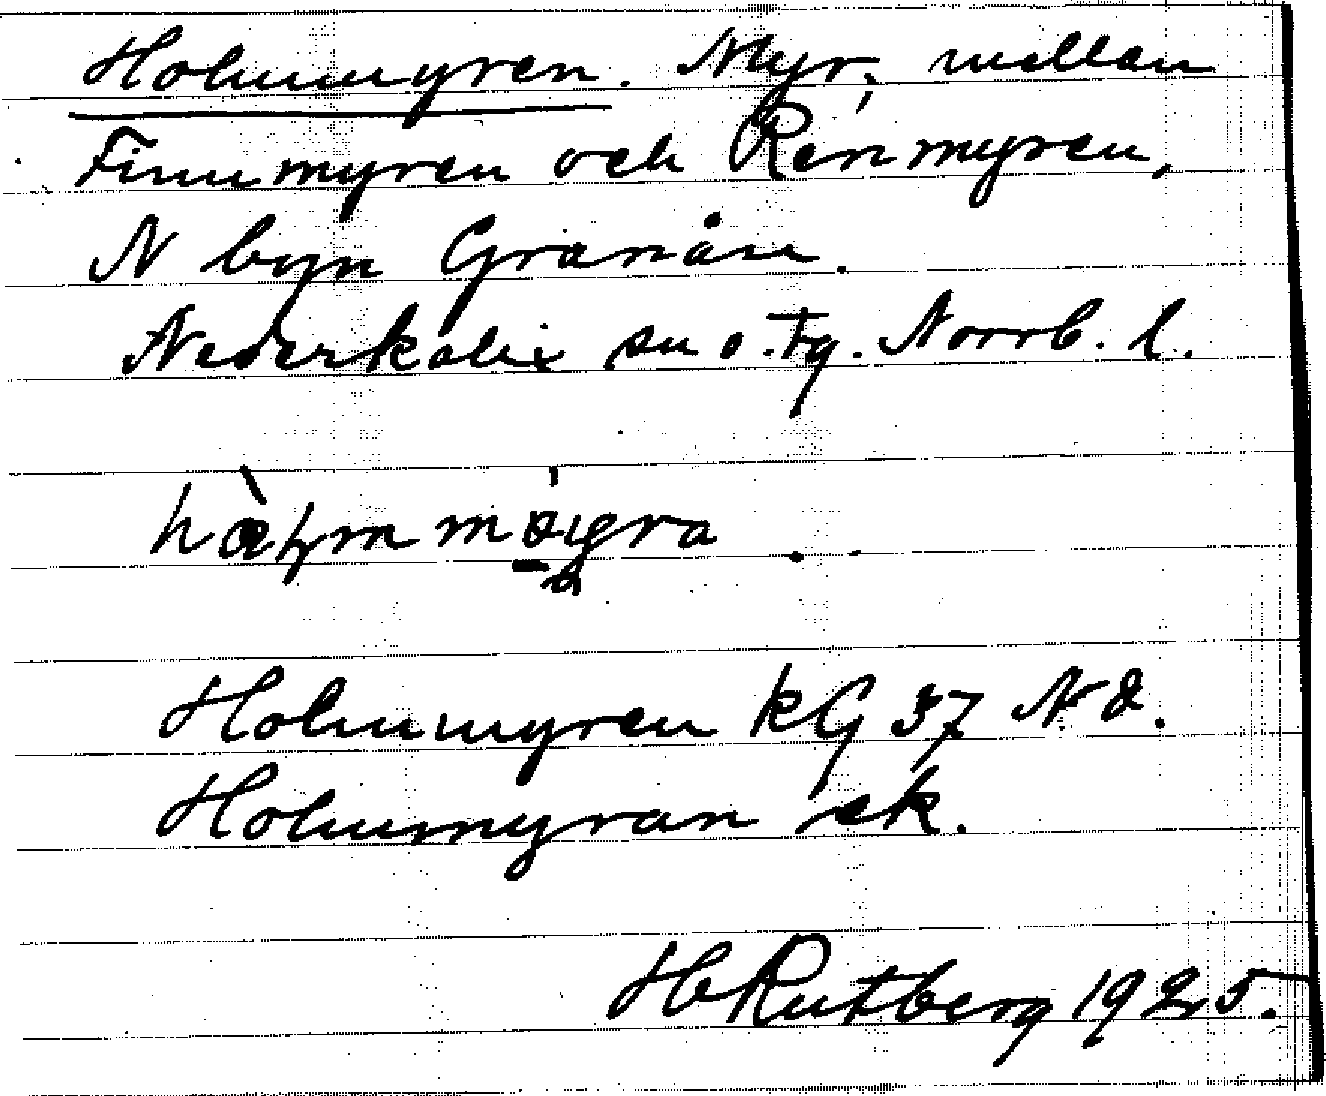 Holmmyren. Myr, mellan
Finnmyren och Renmyren,
N byn Granån.
Nederkalix sn o. Tg. Norrb. l.
Holmmyren kG 37 NO.
Holmmyran ek.
H Rutberg 1925.